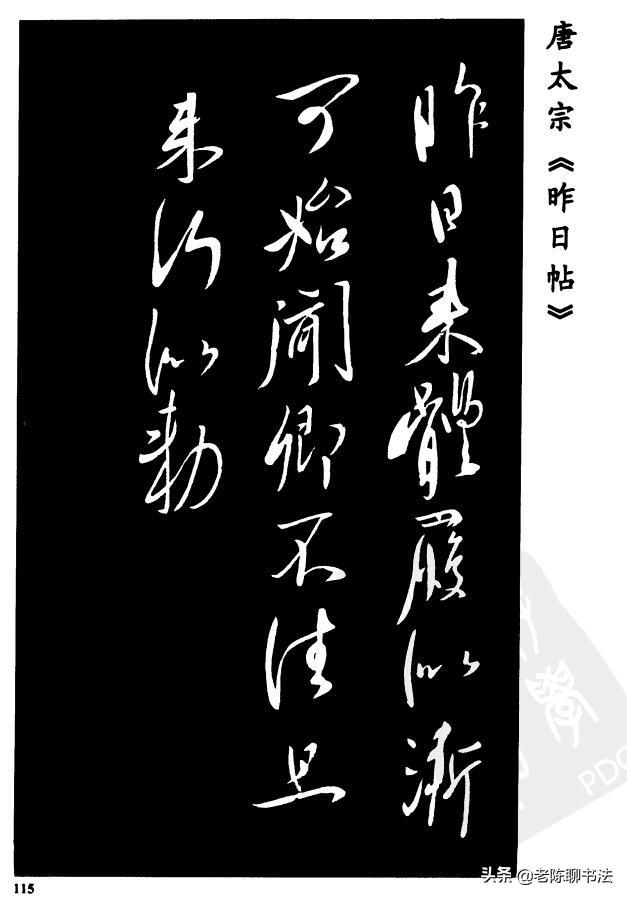 唐太宗《昨日帖》
昨日来體履似漸
可始聞卿不佳旦
来何似勅
115
头条 @老陈聊书法